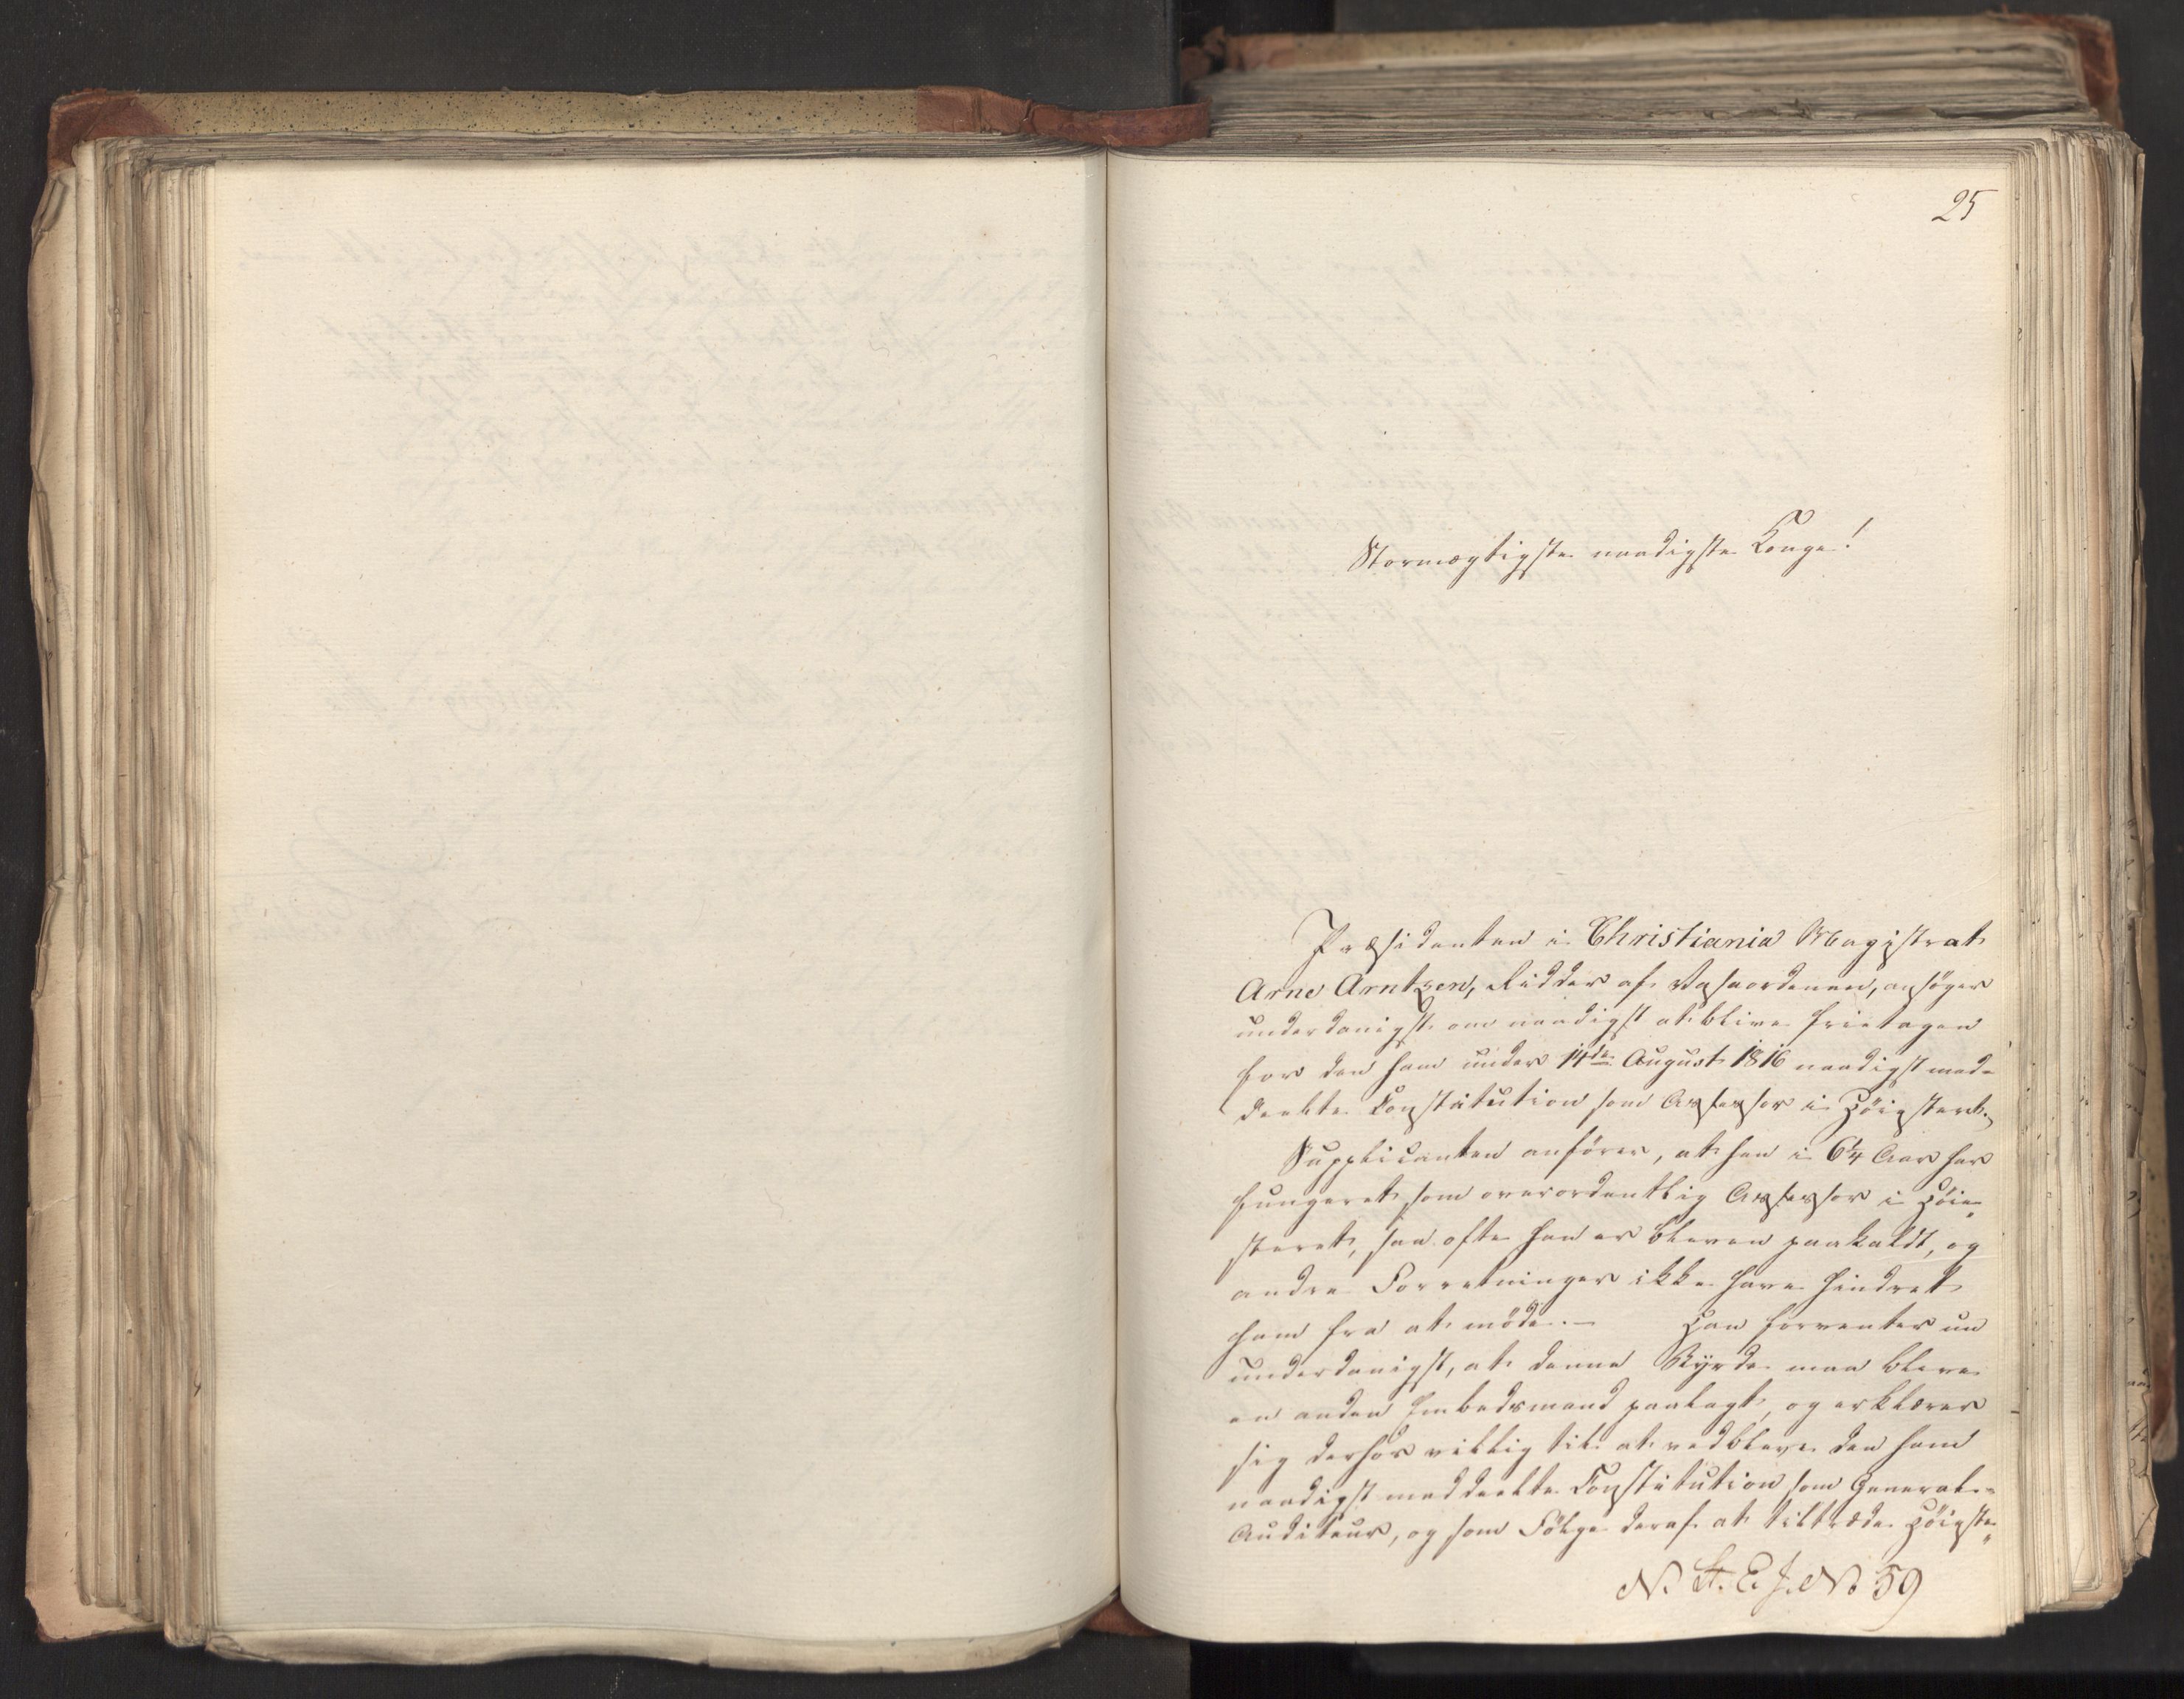 25
Stormægtigste naadigste Konge!
Præsidenten i Christiania Magistrat
Arne Arntzen, Ridder af Vasaordenen, ansöger
underdanigst om naadigst at blive fritagen
for den ham under 14de August 1816 naadigst med-
deelte Constitution som Assessor i Höiesteret.
Supplicanten anförer, at han i 6¼ Aar har
fungeret som overordentlig Assessor i Höie-
steret, saa ofte han er bleven paakaldt, og
andre Forretninger ikke have hindret
ham fra at möde. — Han forventer nu
underdanigst, at denne Byrde maa blive
en anden Embedsmand paalagt, og erklærer
sig derhos villig til at vedblive den ham
naadigst meddeelte Constitution som General-
Auditeur, og som Fölge deraf at tiltræde Höieste-
N. St. E. J. No 59